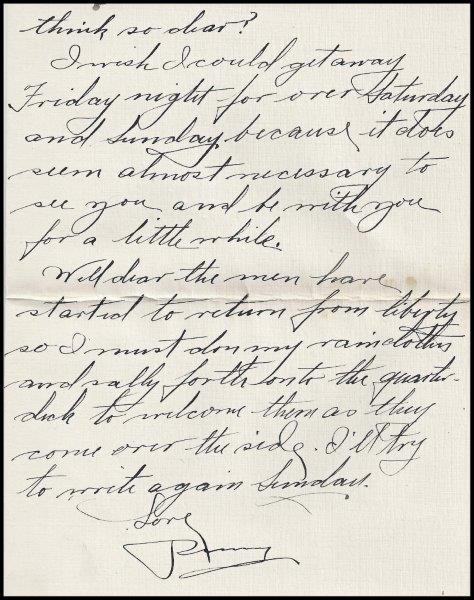 think so dear?
I wish I could get away
Friday night for over Saturday
and Sunday because it does
seem almost necessary to
see you and be with you
for a little while.
Well dear the men have
started to return from liberty
so I must don my rainclothes
and sally forth onto the quarter-
deck to welcome them as they
come over the side. I'll try
to write again Sunday.
Love